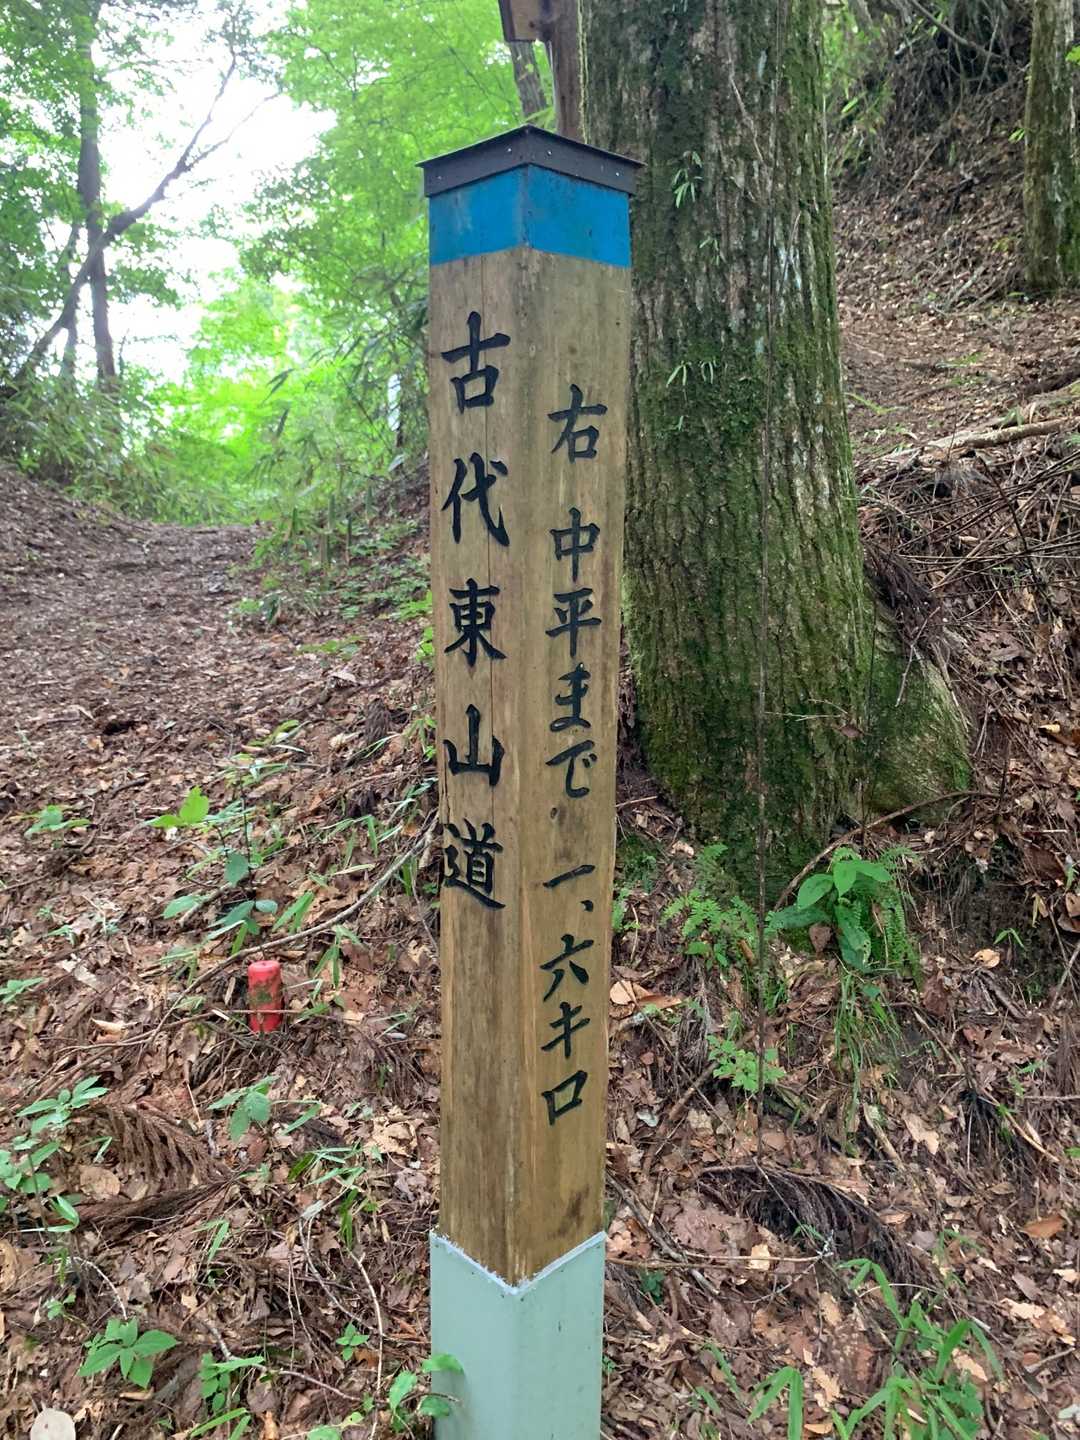 古代東山道
右 中平まで 一、六キロ